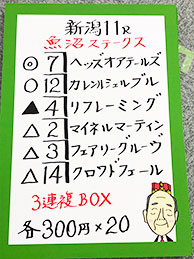 新潟11R
魚沼ステークス
◎ 7 ヘッズオアテールズ
○ 12 カレンルシェルブル
▲ 4 リフレーミング
△ 2 マイネルマーティン
△ 3 フェアリーグルーヴ
△ 14 クロウドフェール
3連複BOX
各300円×20